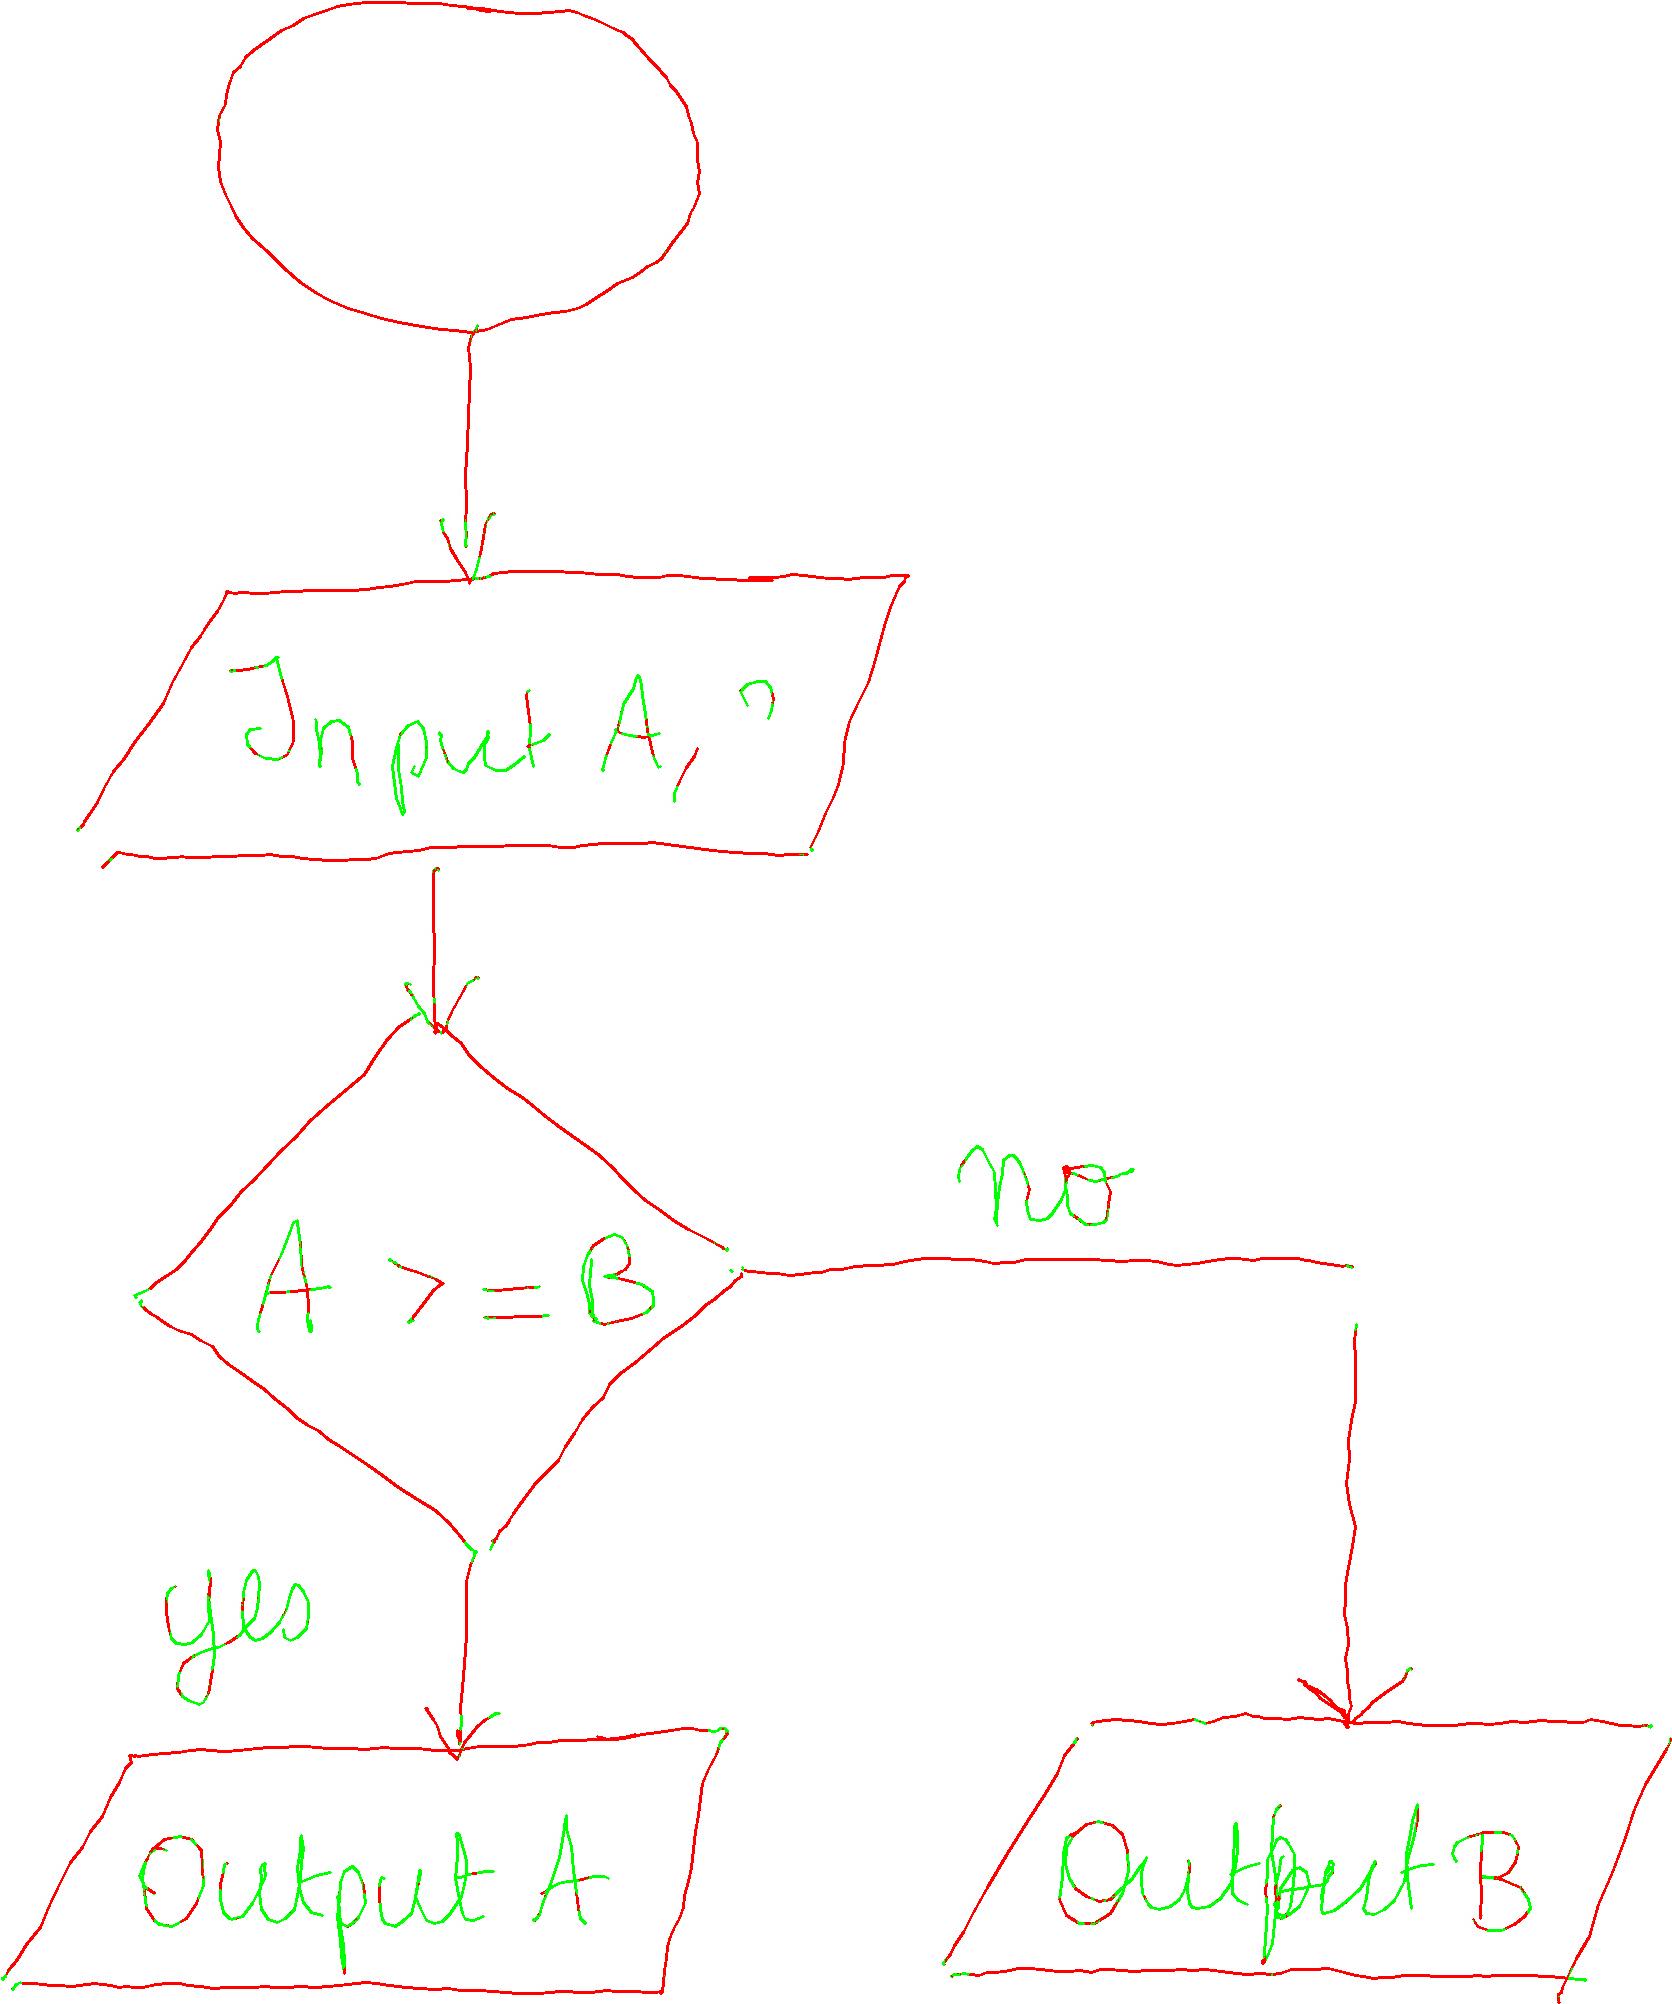 Input A,
no
A >= B
yes
Output A
Output B